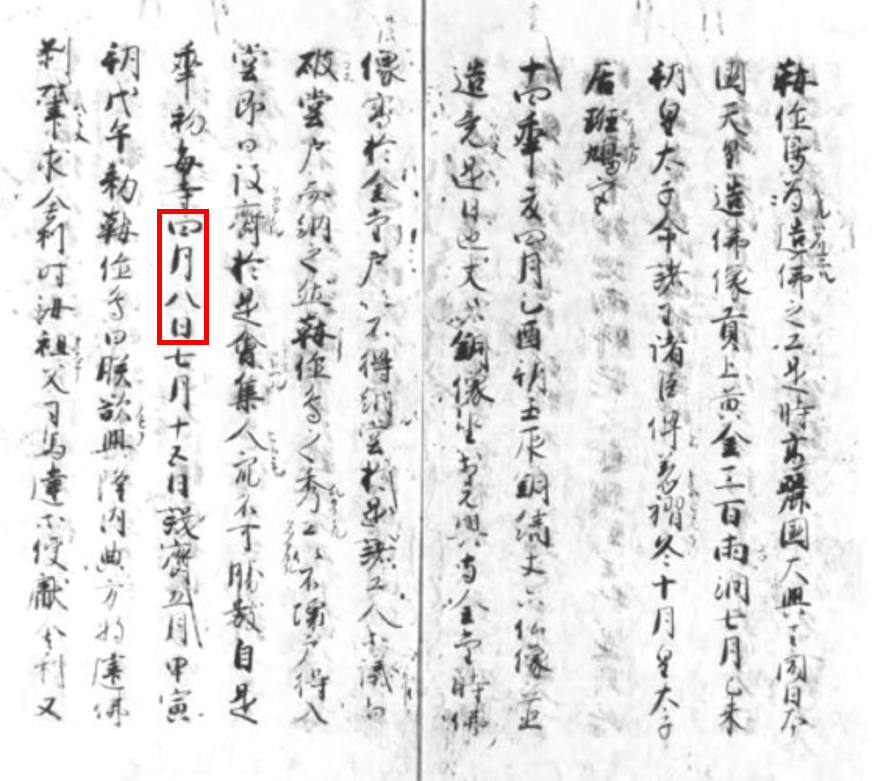 鞍作鳥為造佛之工是時高麗國大興王聞日本
國天皇造佛像貢上黄金三百兩潤七月己未
朔皇太子令諸王諸臣俾著褶冬十月皇太子
居斑鳩宮
十四年夏四月乙酉朔壬辰銅繍丈六仏像並
造竟是日也丈六銅像坐於元興寺金堂時佛
像高於金堂戸以不得納堂於是諸工人等議曰
破堂戸而納之然鞍作鳥之秀工以不壊戸得入
堂即日設齋於是會集人衆不可勝數自是
年初毎寺四月八日七月十五日設齋五月甲寅
朔戊午勅鞍作鳥曰朕欲興隆内典方将建佛
刹肇求舎利時汝祖父司馬達等便獻舎利又